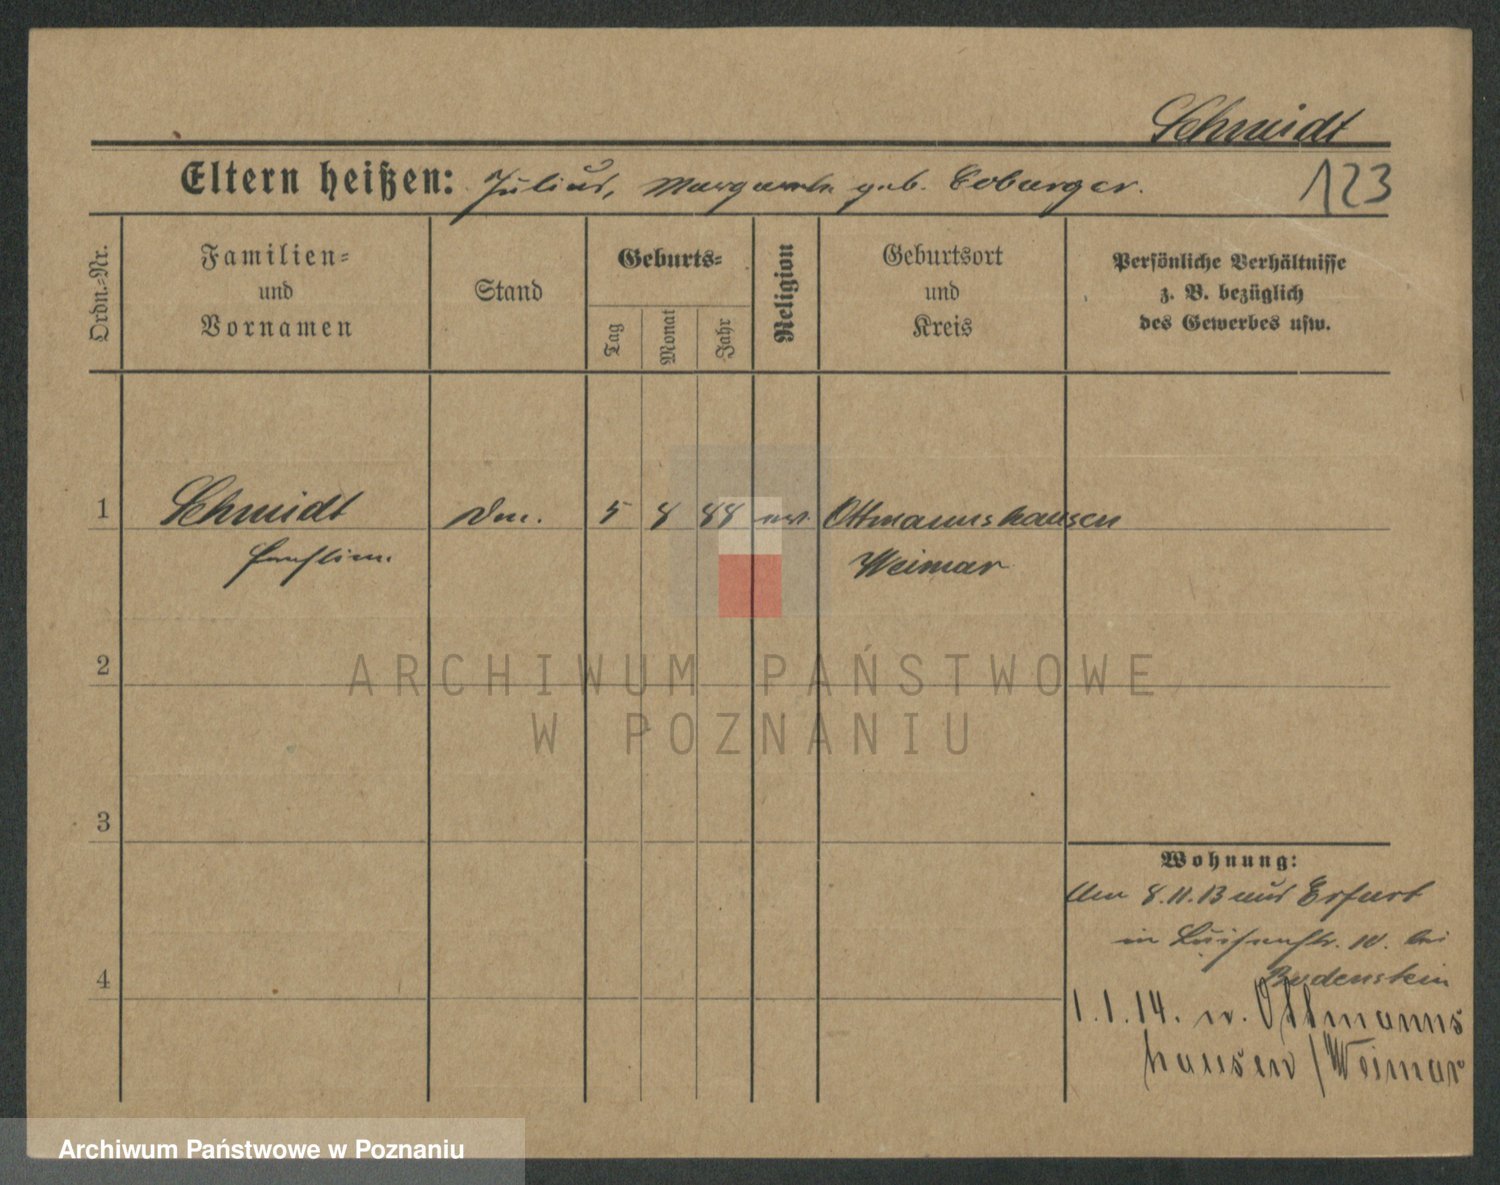 Schmidt
Eltern heißen: Julius, Margareth geb. Coburger.
123
Ordn.=Nr.
Familien=
und
Vornamen
Stand
Geburts=
Tag
Monat
Jahr
Religion
Geburtsort
und
Kreis
Persönliche Verhältnisse
z. B. bezüglich
des Gewerbes usw.
1 Schmidt 5 8 88 ev. Ottmannshausen
Weimar
2
ARCHIWUM PAŃSTWOWE
W POZNANIU
3
Wohnung:
Am 8.11.13 aus Erfurt
in Luisenstr. 10. bei
Bodenstein
4
1.1.14. n. Ottmanns
hausen / Weimar
Archiwum Państwowe w Poznaniu